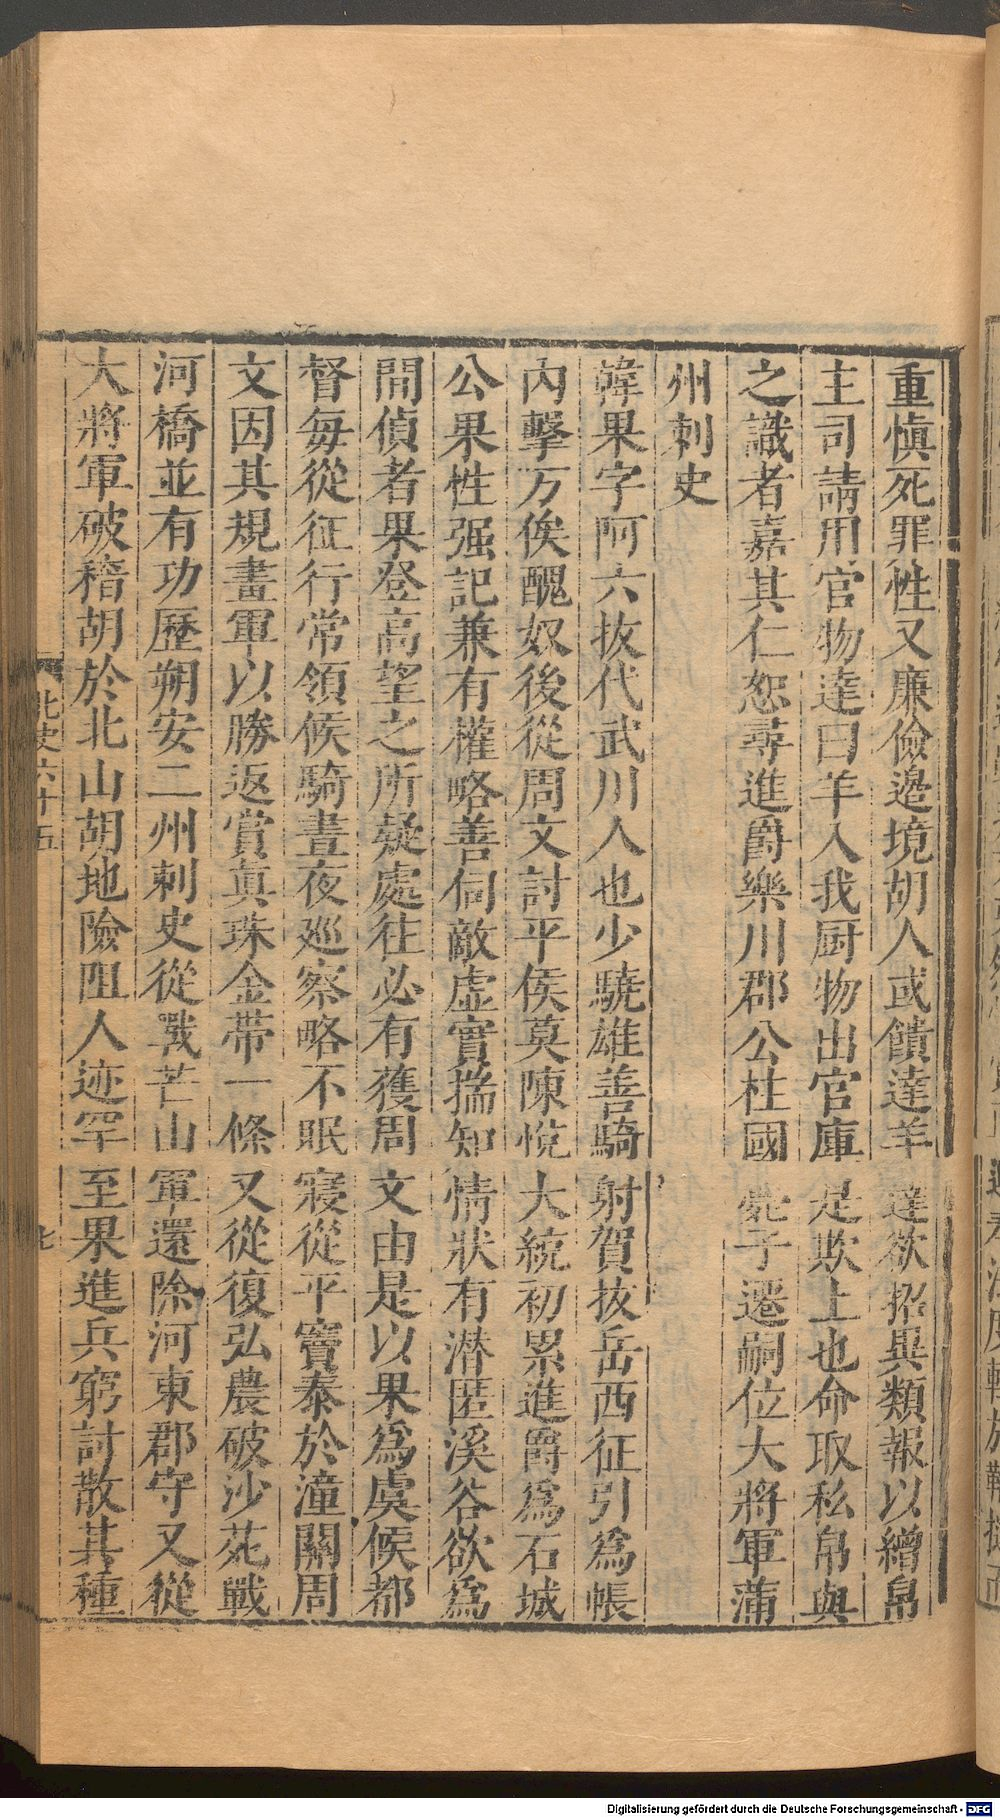 重愼死罪性又廉儉邊境胡人或饋達羊達欲招異類報以繒帛
主司請用官物達曰羊入我厨物出官庫是欺上也命取私帛與
之識者嘉其仁恕尋進爵樂川郡公柱國薨子遷嗣位大將軍蒲
州刺史
韓果字阿六拔代武川人也少驍雄善騎射賀拔岳西征引爲帳
內擊万俟醜奴後從周文討平侯莫陳悅大統初累進爵爲石城
公果性强記兼有權略善伺敵虛實揣知情狀有潜匿溪谷欲爲
閒偵者果登高望之所疑處往必有獲周文由是以果爲虞候都
督每從征行常領候騎晝夜廵察略不眠寢從平竇泰於潼關周
文因其規畫軍以勝返賞眞珠金帶一條又從復弘農破沙苑戰
河橋並有功歷朔安二州刺史從戰芒山軍還除河東郡守又從
大將軍破稽胡於北山胡地險阻人迹罕至果進兵窮討散其種
北史六十五
七
Digitalisierung gefördert durch die Deutsche Forschungsgemeinschaft - DFG